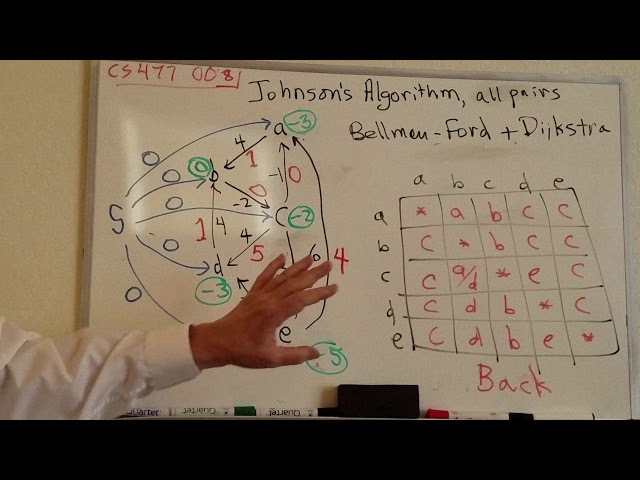 CS477 008
Johnson's Algorithm, all pairs
Bellmen-Ford + Dijkstra
a -3
0 4 1 -1 0
0 0 b
0 -2 0
S 0 C -2
1 4 4 5 6 4
0 d
-3
0
e -5
a b c d e
a * a b c c
b c * b c c
c c a/d * e c
d c d b * c
e c d b e *
Back
Quartet
Quartet